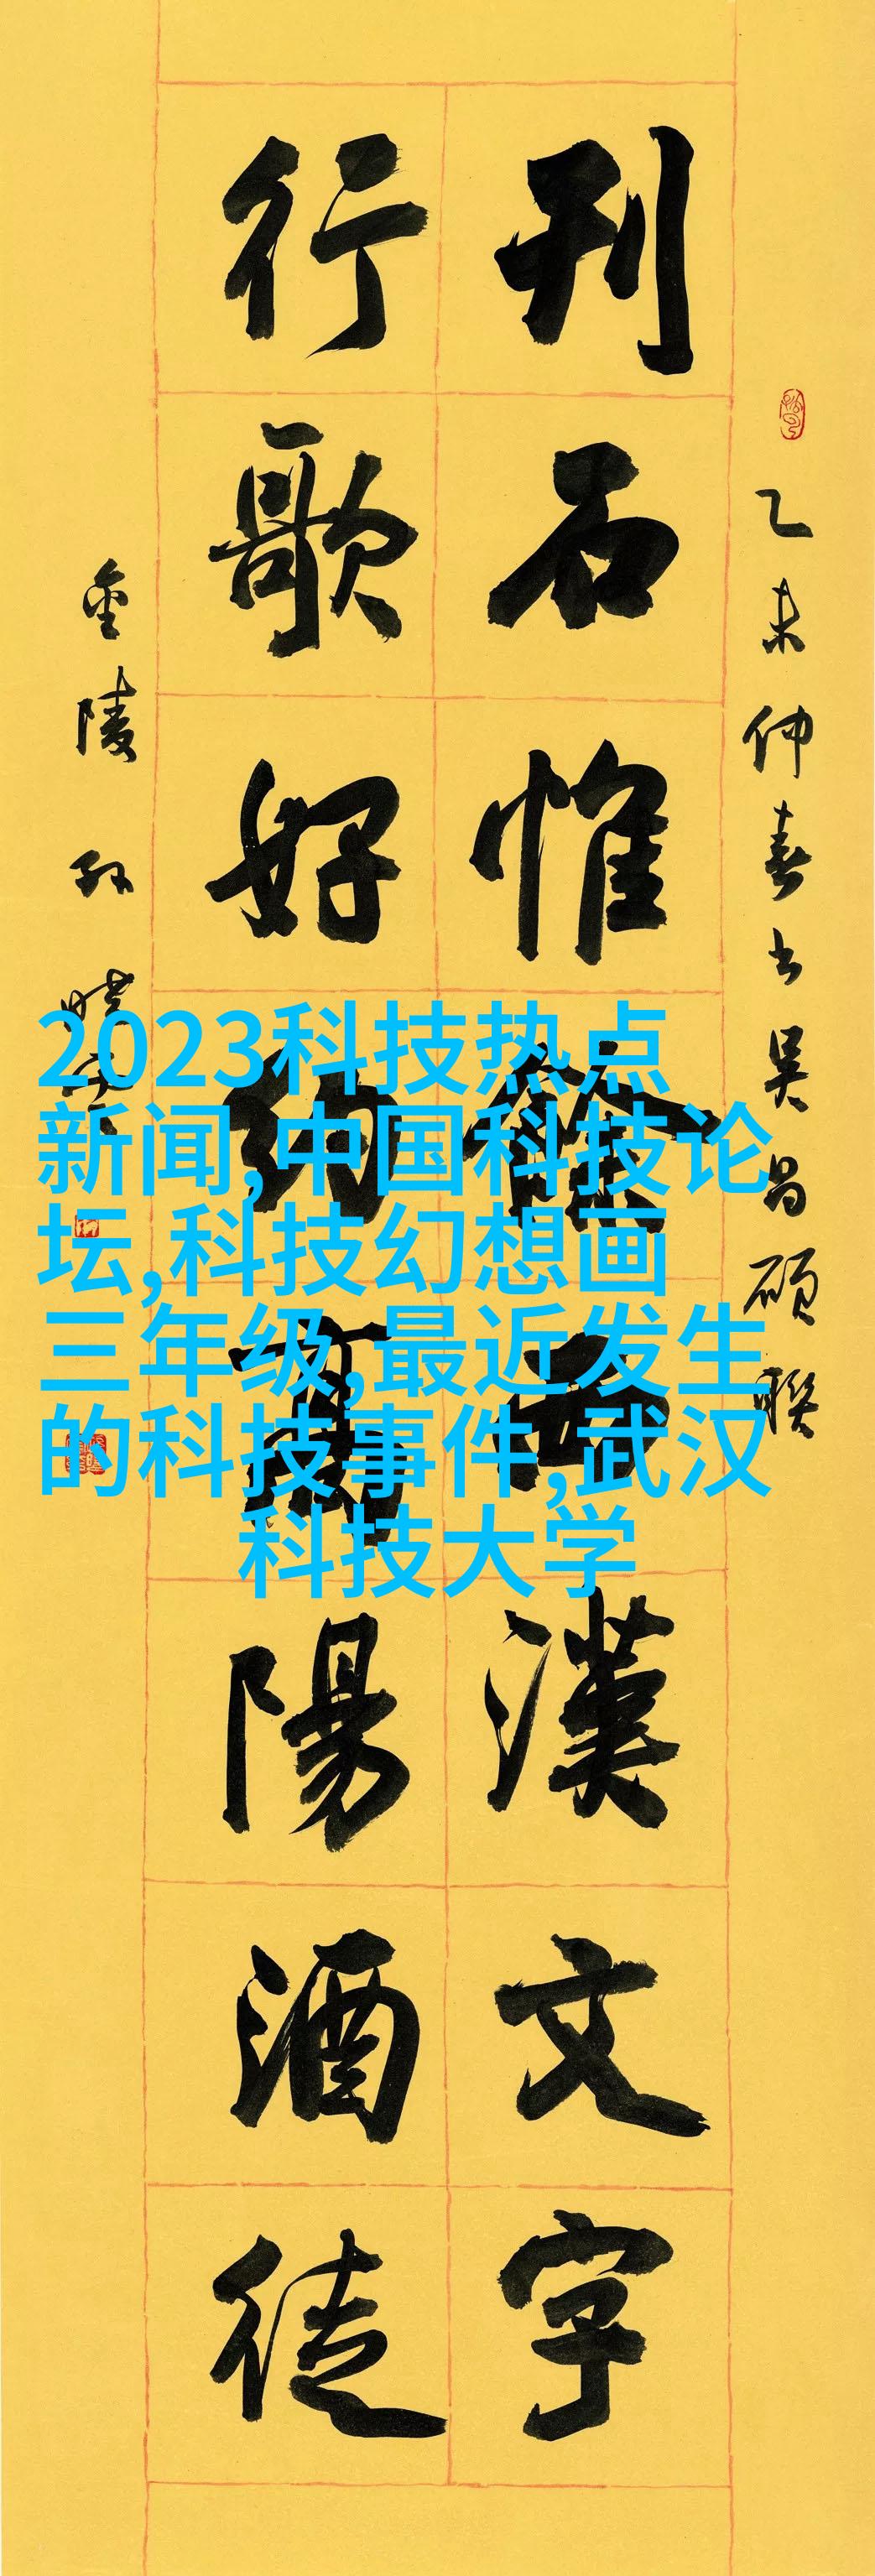 乙未仲春书吴昌碩聯
刊石惟餘西漢文字
行歌好約高陽酒徒
金陵孙曉云
2023科技热点
新闻,中国科技论
坛,科技幻想画
三年级,最近发生
的科技事件,武汉
科技大学